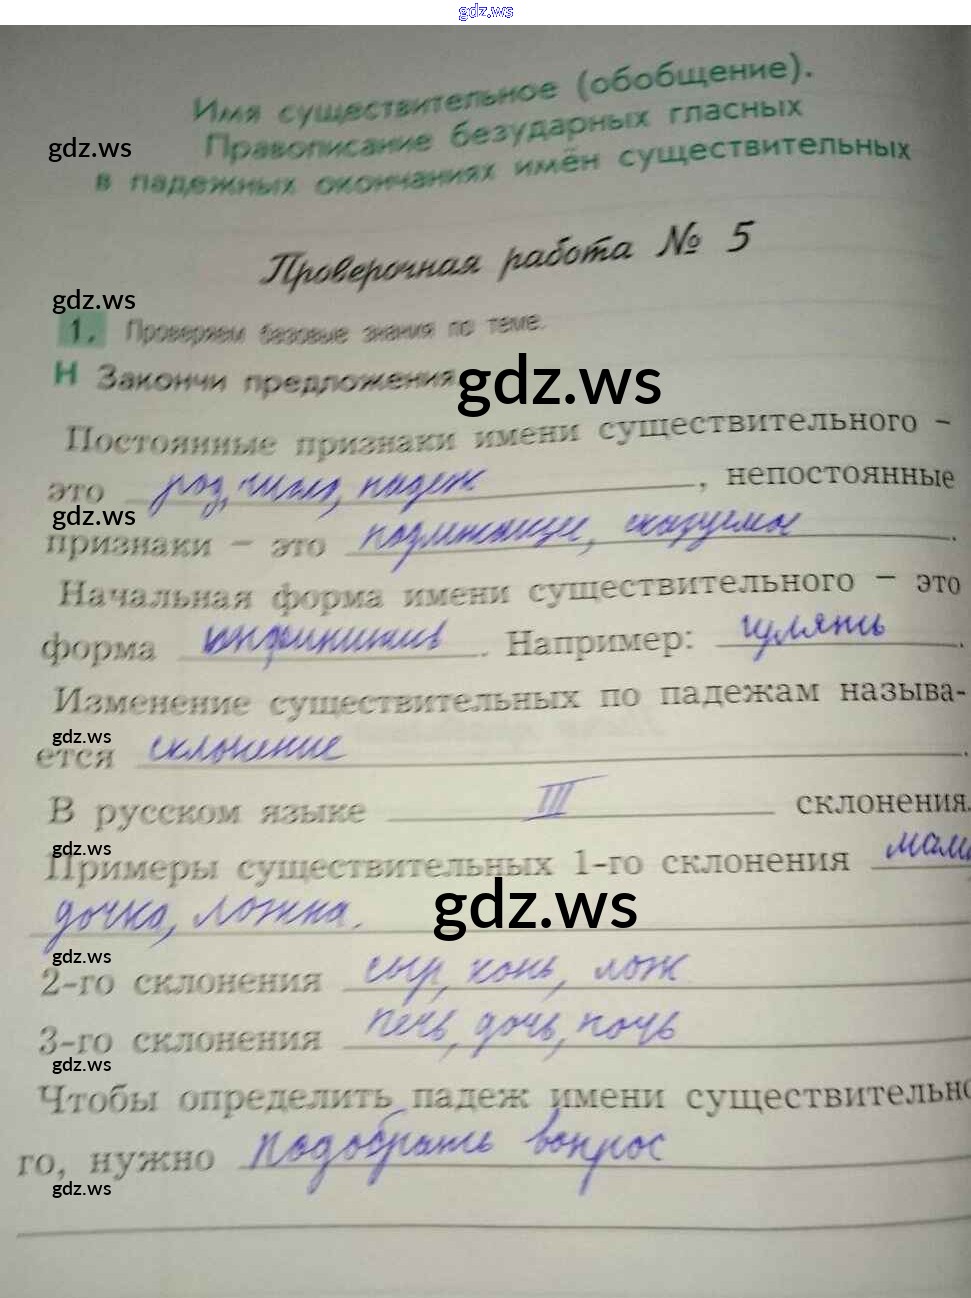 gdz.ws
Имя существительное (обобщение).
Правописание безударных гласных
gdz.ws
в падежных окончаниях имён существительных
Проверочная работа № 5
gdz.ws
1. Проверяем базовые знания по теме.
Н Закончи предложения
gdz.ws
Постоянные признаки имени существительного –
это род, число, падеж, непостоянные
gdz.ws
признаки – это подлежащее, сказуемое.
Начальная форма имени существительного – это
форма . Например: гулять.
Изменение существительных по падежам называ-
gdz.ws
ется склонение.
В русском языке III склонения.
gdz.ws
Примеры существительных 1-го склонения
дочка, .
gdz.ws
gdz.ws
2-го склонения сыр, конь,
3-го склонения печь, дочь, ночь
gdz.ws
Чтобы определить падеж имени существительно
го, нужно подобрать вопрос
gdz.ws